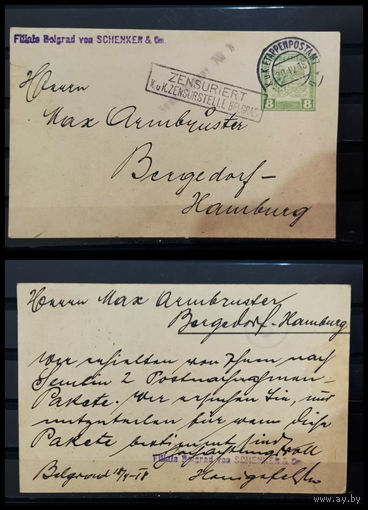 Filiale Belgrad von SCHENKER & Co.
K.u.K. ETAPPENPOSTAMT
ZENSURIERT
K.u.K. ZENSURSTELLE BELGRAD
8 8
Herrn
Max Armbrüster
Bergedorf-
Hamburg
Herrn Max Armbruster
Bergedorf-Hamburg
Wir erhielten von Ihnen nach
Semlin 2 Postnachnahmen-
Pakete. Wir ersuchen Sie, uns
mitzuteilen für wen diese
Pakete bestimmt sind.
Hochachtungsvoll
Filiale Belgrad von SCHENKER & Co.
Belgrad 18/4-18
ay.by